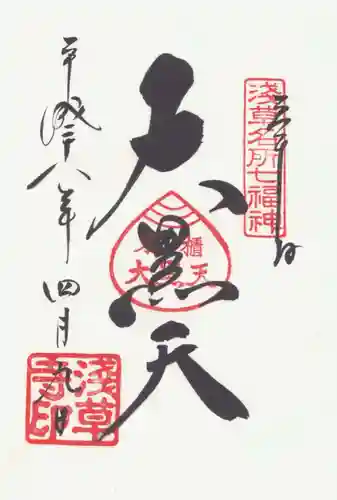 奉拝
浅草名所七福神
大黒天
平成二十八年四月九日
浅草寺印